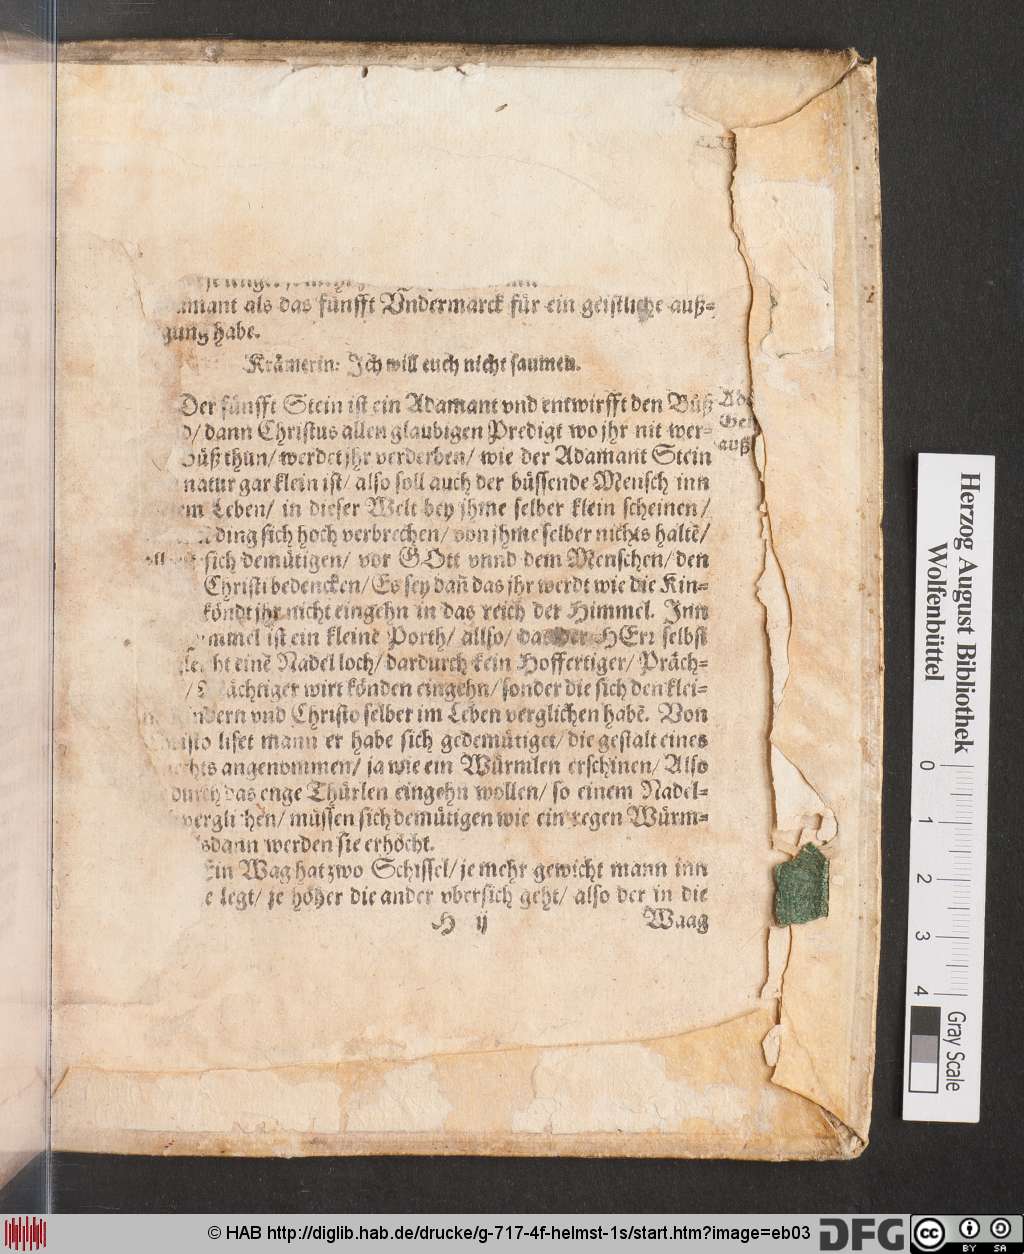 als das fünfft Vndermarck für ein geistliche auß-
gung habe.
Krämerin: Ich will euch nicht saumen.
Der fünfft Stein ist ein Adamant vnd entwirfft den Büß
dann Christus allen glaubigen Predigt wo jhr nit wer-
Büß thun/ werdet jhr verderben/ wie der Adamant Stein
natur gar klein ist/ also soll auch der büssende Mensch inn
Leben/ in dieser Welt bey jhme selber klein scheinen/
ding sich hoch verbrechen/ von jhme selber nichts haltē/
sich demütigen/ vor GOtt vnnd dem Menschen/ den
Christi bedencken/ Es sey dañ das jhr werdt wie die Kin-
köndt jhr nicht eingehn in das reich der Himmel. Inn
ist ein kleinē Porth/ allso/ das der HErr selbst
einē Nadel loch/ dardurch kein Hoffertiger/ Präch-
wirt könden eingehn/ sonder die sich den klei-
vnd Christo selber im Leben verglichen habē. Von
liset mann er habe sich gedemütiget/ die gestalt eines
angenommen/ ja wie ein Würmlen erschinen/ Also
durch das enge Thürlen eingehn wollen/ so einem Nadel-
müssen sich demütigen wie ein regen Würm-
werden sie erhöcht.
Ein Wag hat zwo Schissel/ je mehr gewicht mann inn
legt/ je höher die ander vbersich geht/ also der in die
H ij Waag
Herzog August Bibliothek
Wolfenbüttel
0 1 2 3 4
Gray Scale
© HAB http://diglib.hab.de/drucke/g-717-4f-helmst-1s/start.htm?image=eb03
DFG
cc BY SA